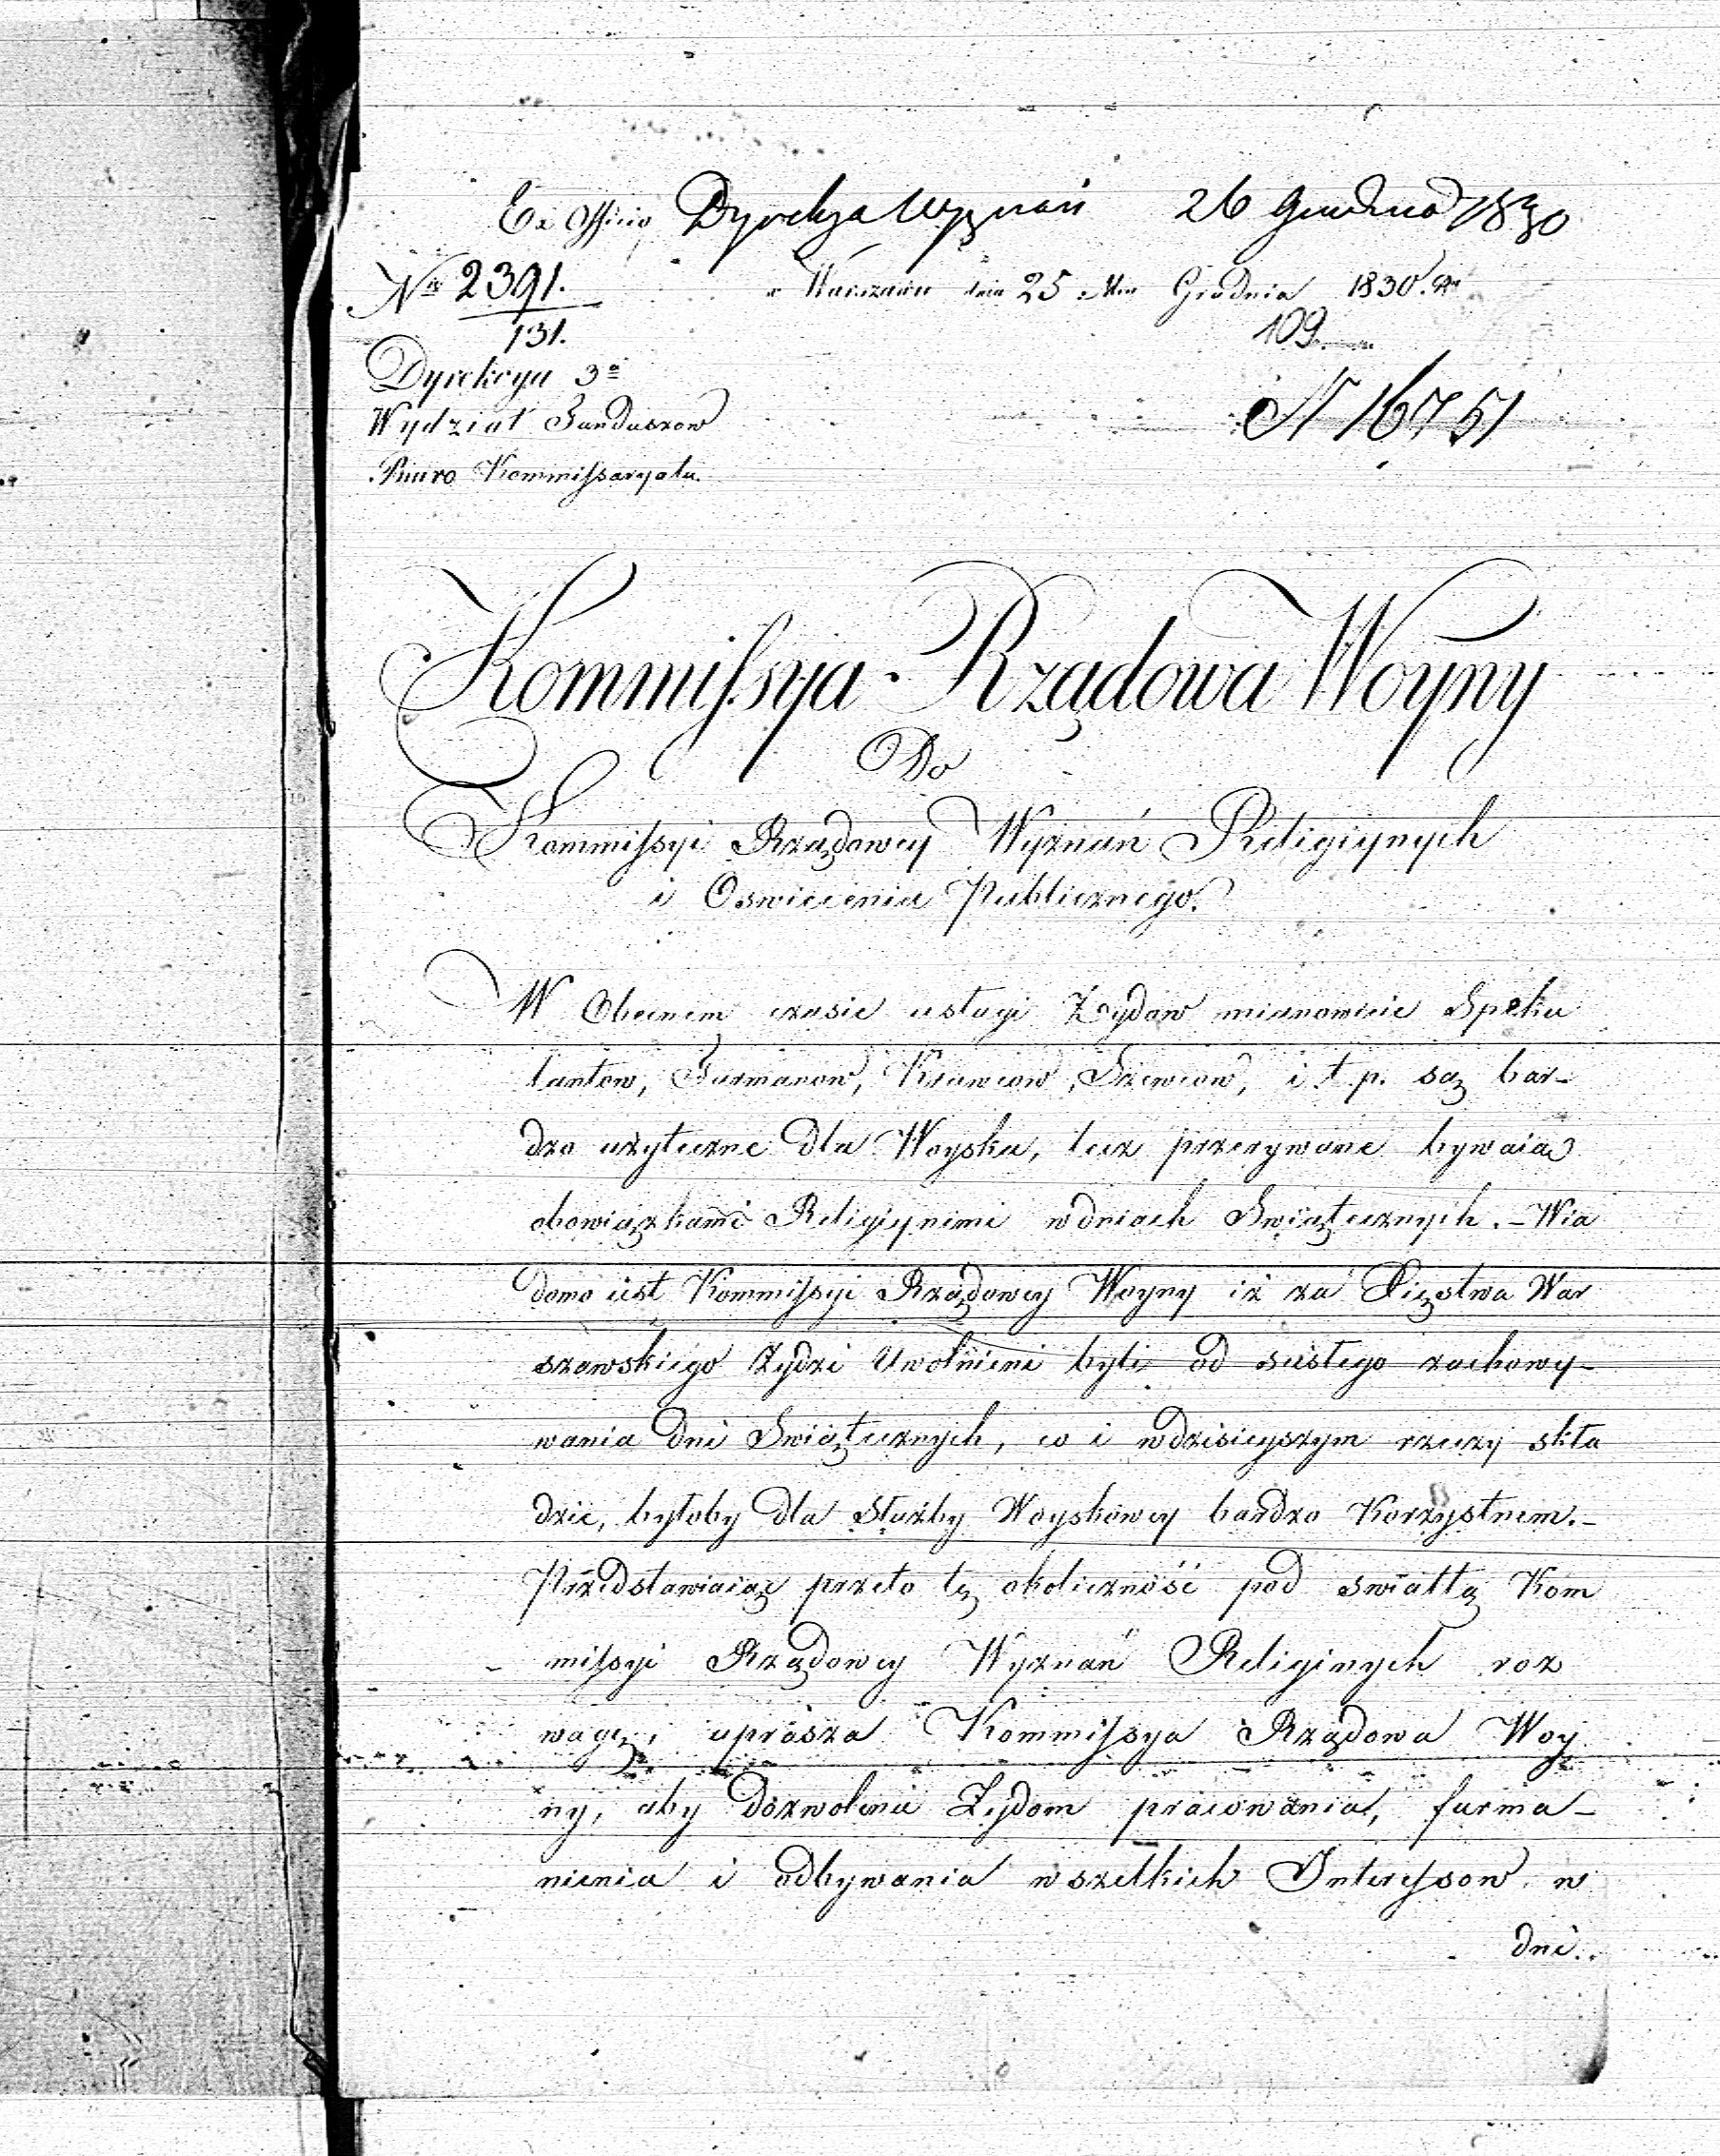 Ex Officio Dyrekcya Wyznań 26 Grudnia 1830
No 2391. w Warszawie dnia 25 Mca Grudnia 1830. Ru
131. 109.
Dyrekcya 3a
N 16751
Wydział Funduszow
Biuro Kommissaryatu.
Kommissya Rządowa Woyny
Do
Kommissyi Rządowey Wyznań Religiynych
i Oswiecenia Publicznego.
W Obecnem czasie usługi Żydow mianowicie Speku
lantow, Furmanow, Krawcow, Szewcow, i t. p. są bar-
dzo użyteczne dla Woyska, lecz przerywane bywaią
obowiązkami Religiynemi w dniach Swiątecznych. - Wia
domo iest Kommissyi Rządowey Woyny iż za Xięstwa War
szawskiego Żydzi Uwolnieni byli od scisłego zachowy-
wania dni Swiątecznych, co i w dzisieyszym rzeczy skła
dzie, byłoby dla Służby Woyskowey bardzo Korzystnem. -
Przedstawiaiąc przeto tę okoliczność pod swiatłą Kom
missyi Rządowey Wyznań Religinych roz
wagę, uprasza Kommissya Rządowa Woy
ny, aby dozwolenie Żydom pracowania, furma-
nienia i odbywania wszelkich Interessow w
dni.